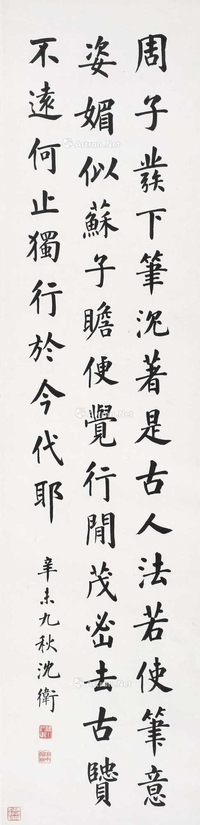 周子發下筆沉著是古人法若使筆意
姿媚似蘇子瞻便覺行間茂密去古人
不遠何止獨行於今代耶
辛未九秋沈衛